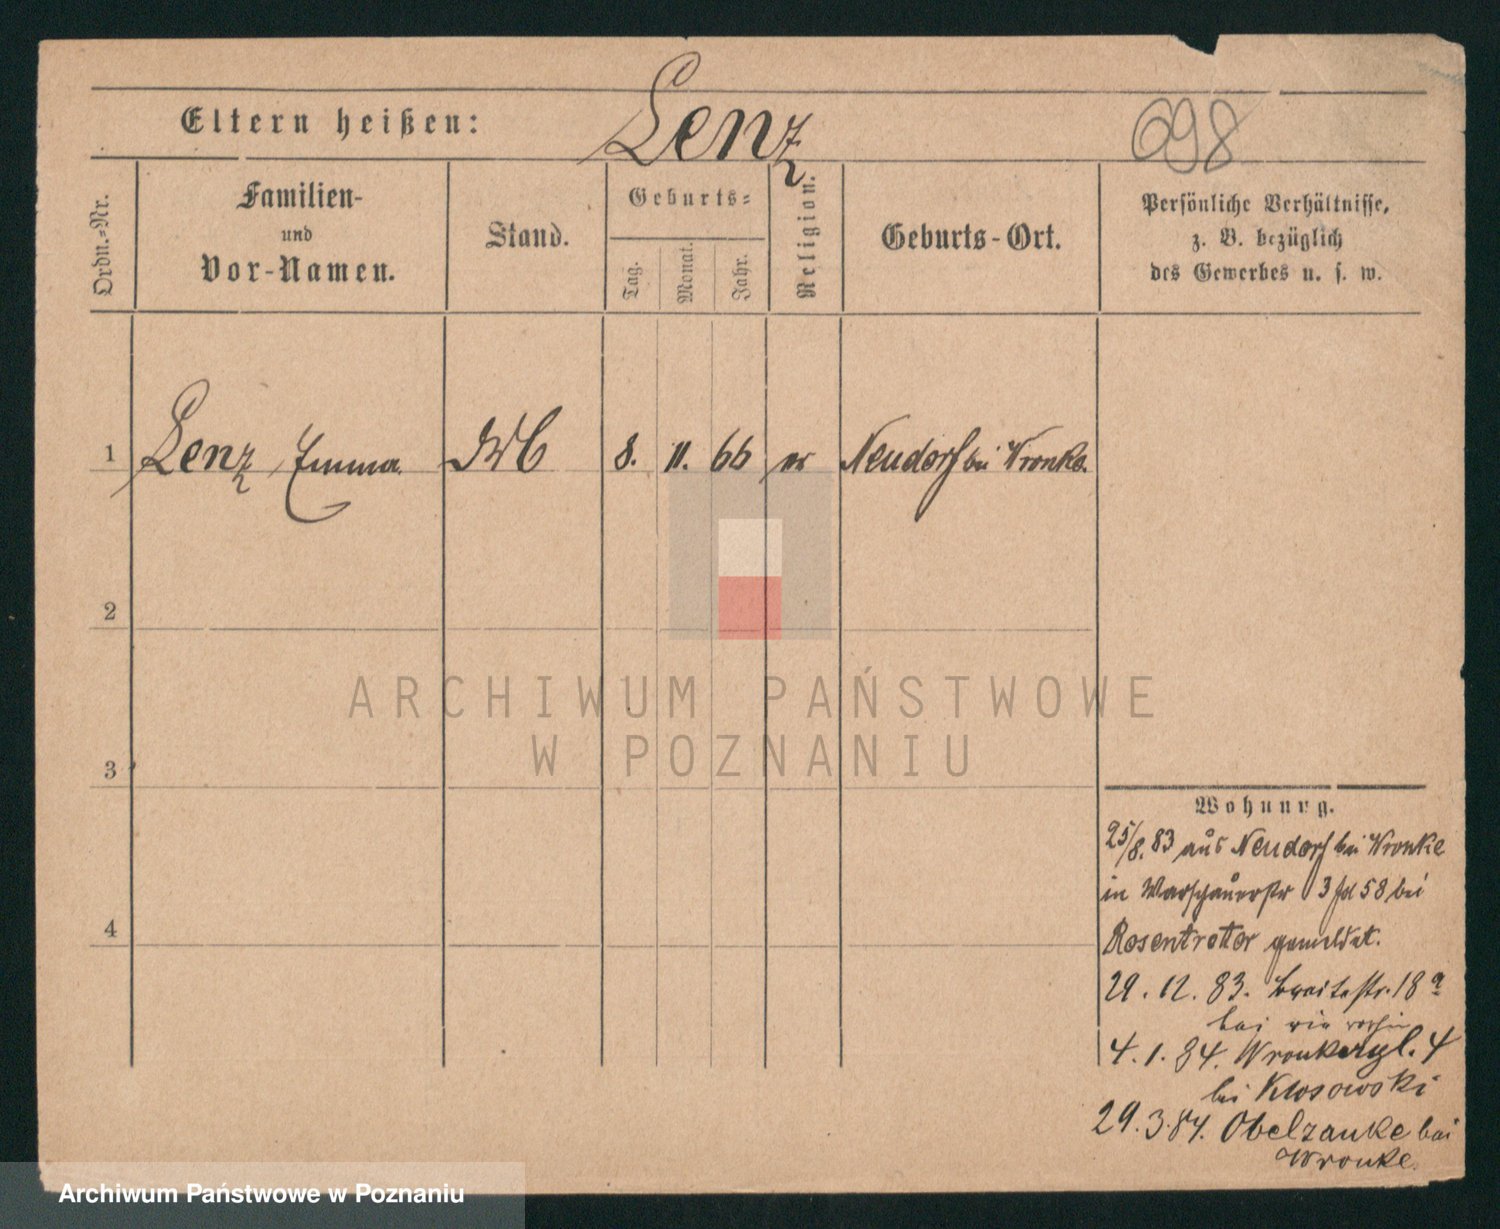 Eltern heißen: Lenz 698
Ordn.-Nr.
Familien-
und
Vor-Namen.
Stand.
Geburts-
Tag.
Monat.
Jahr.
Religion.
Geburts-Ort.
Persönliche Verhältnisse,
z. B. bezüglich
des Gewerbes u. s. w.
1 Lenz, Emma 8. 11. 66 Neudorf bei Wronke.
2
3
4
Wohnung.
25/8. 83 aus Neudorf bei Wronke
in Warschauerstr 3 58 bei
Rosentretter gemeldet.
29. 12. 83. Breitestr. 18a
bei wie vorhin
4. 1. 84. Wronkerpl. 4
bei Klosowski
29. 3. 84. Obelzanke bei
Wronke.
ARCHIWUM PAŃSTWOWE
W POZNANIU
Archiwum Państwowe w Poznaniu